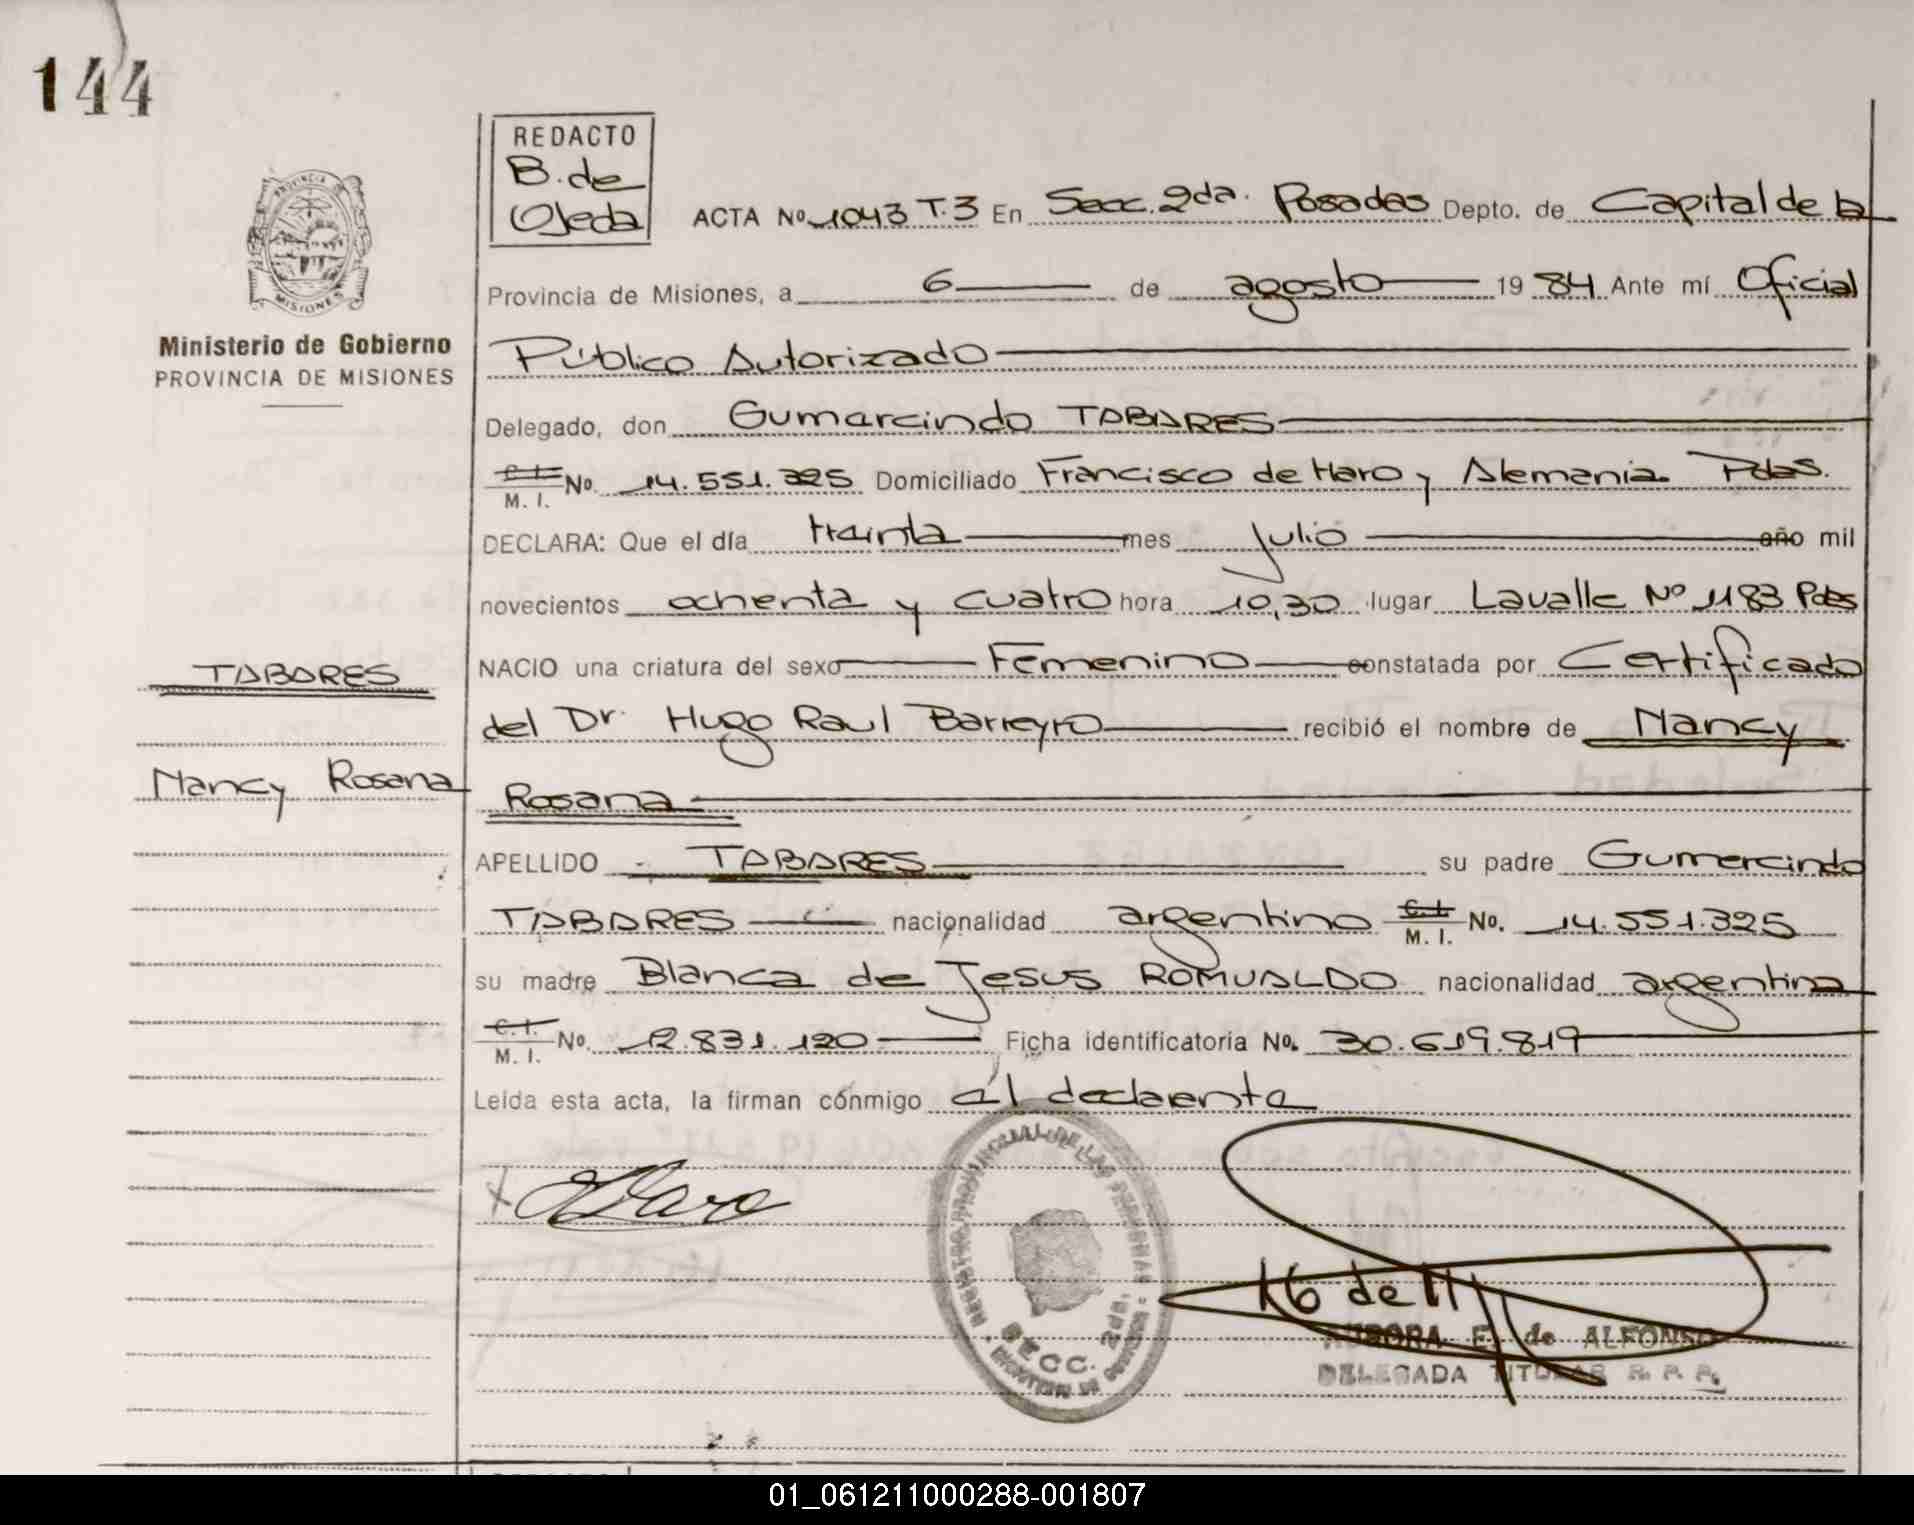 144
REDACTO
B. de
Ojeda
ACTA No 1043 T.3 En Secc. 2da. Posadas Depto. de Capital de la
Provincia de Misiones, a 6 de agosto 1984 Ante mí Oficial
Ministerio de Gobierno
PROVINCIA DE MISIONES
Público Autorizado
Delegado, don Gumarcindo TABARES
C. I. M. I. No. 14.551.325 Domiciliado Francisco de Haro y Alemania Pdas.
DECLARA: Que el día treinta mes julio año mil
novecientos ochenta y cuatro hora 10,30 lugar Lavalle Nº 1183 Pdas
TABARES
NACIO una criatura del sexo Femenino constatada por Certificado
del Dr. Hugo Raul Barreyro recibió el nombre de Nancy
Nancy Rosana
Rosana
APELLIDO TABARES su padre Gumercindo
TABARES nacionalidad argentino C. I. M. I. No. 14.551.325
su madre Blanca de Jesus ROMUALDO nacionalidad argentina
C. I. M. I. No. 12.831.120 Ficha identificatoria No. 30.619.819
Leída esta acta, la firman conmigo el declarante
REGISTRO PROVINCIAL DE LAS PERSONAS
SECC. 2da.
AURORA E. de ALFONSO
DELEGADA TITULAR R. P. P.
PROVINCIA DE
MISIONES
01_061211000288-001807